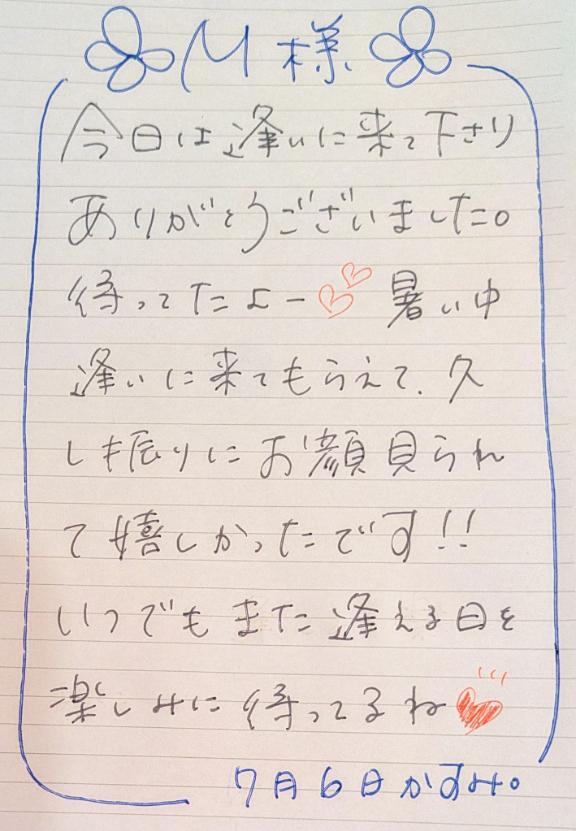 M様
今日は逢いに来て下さり
ありがとうございました。
待ってたよー 暑い中
逢いに来てもらえて、久
しぶ振りにお顔見られ
て嬉しかったです!!
いつでもまた逢える日を
楽しみに待ってるね
7月6日かすみ。